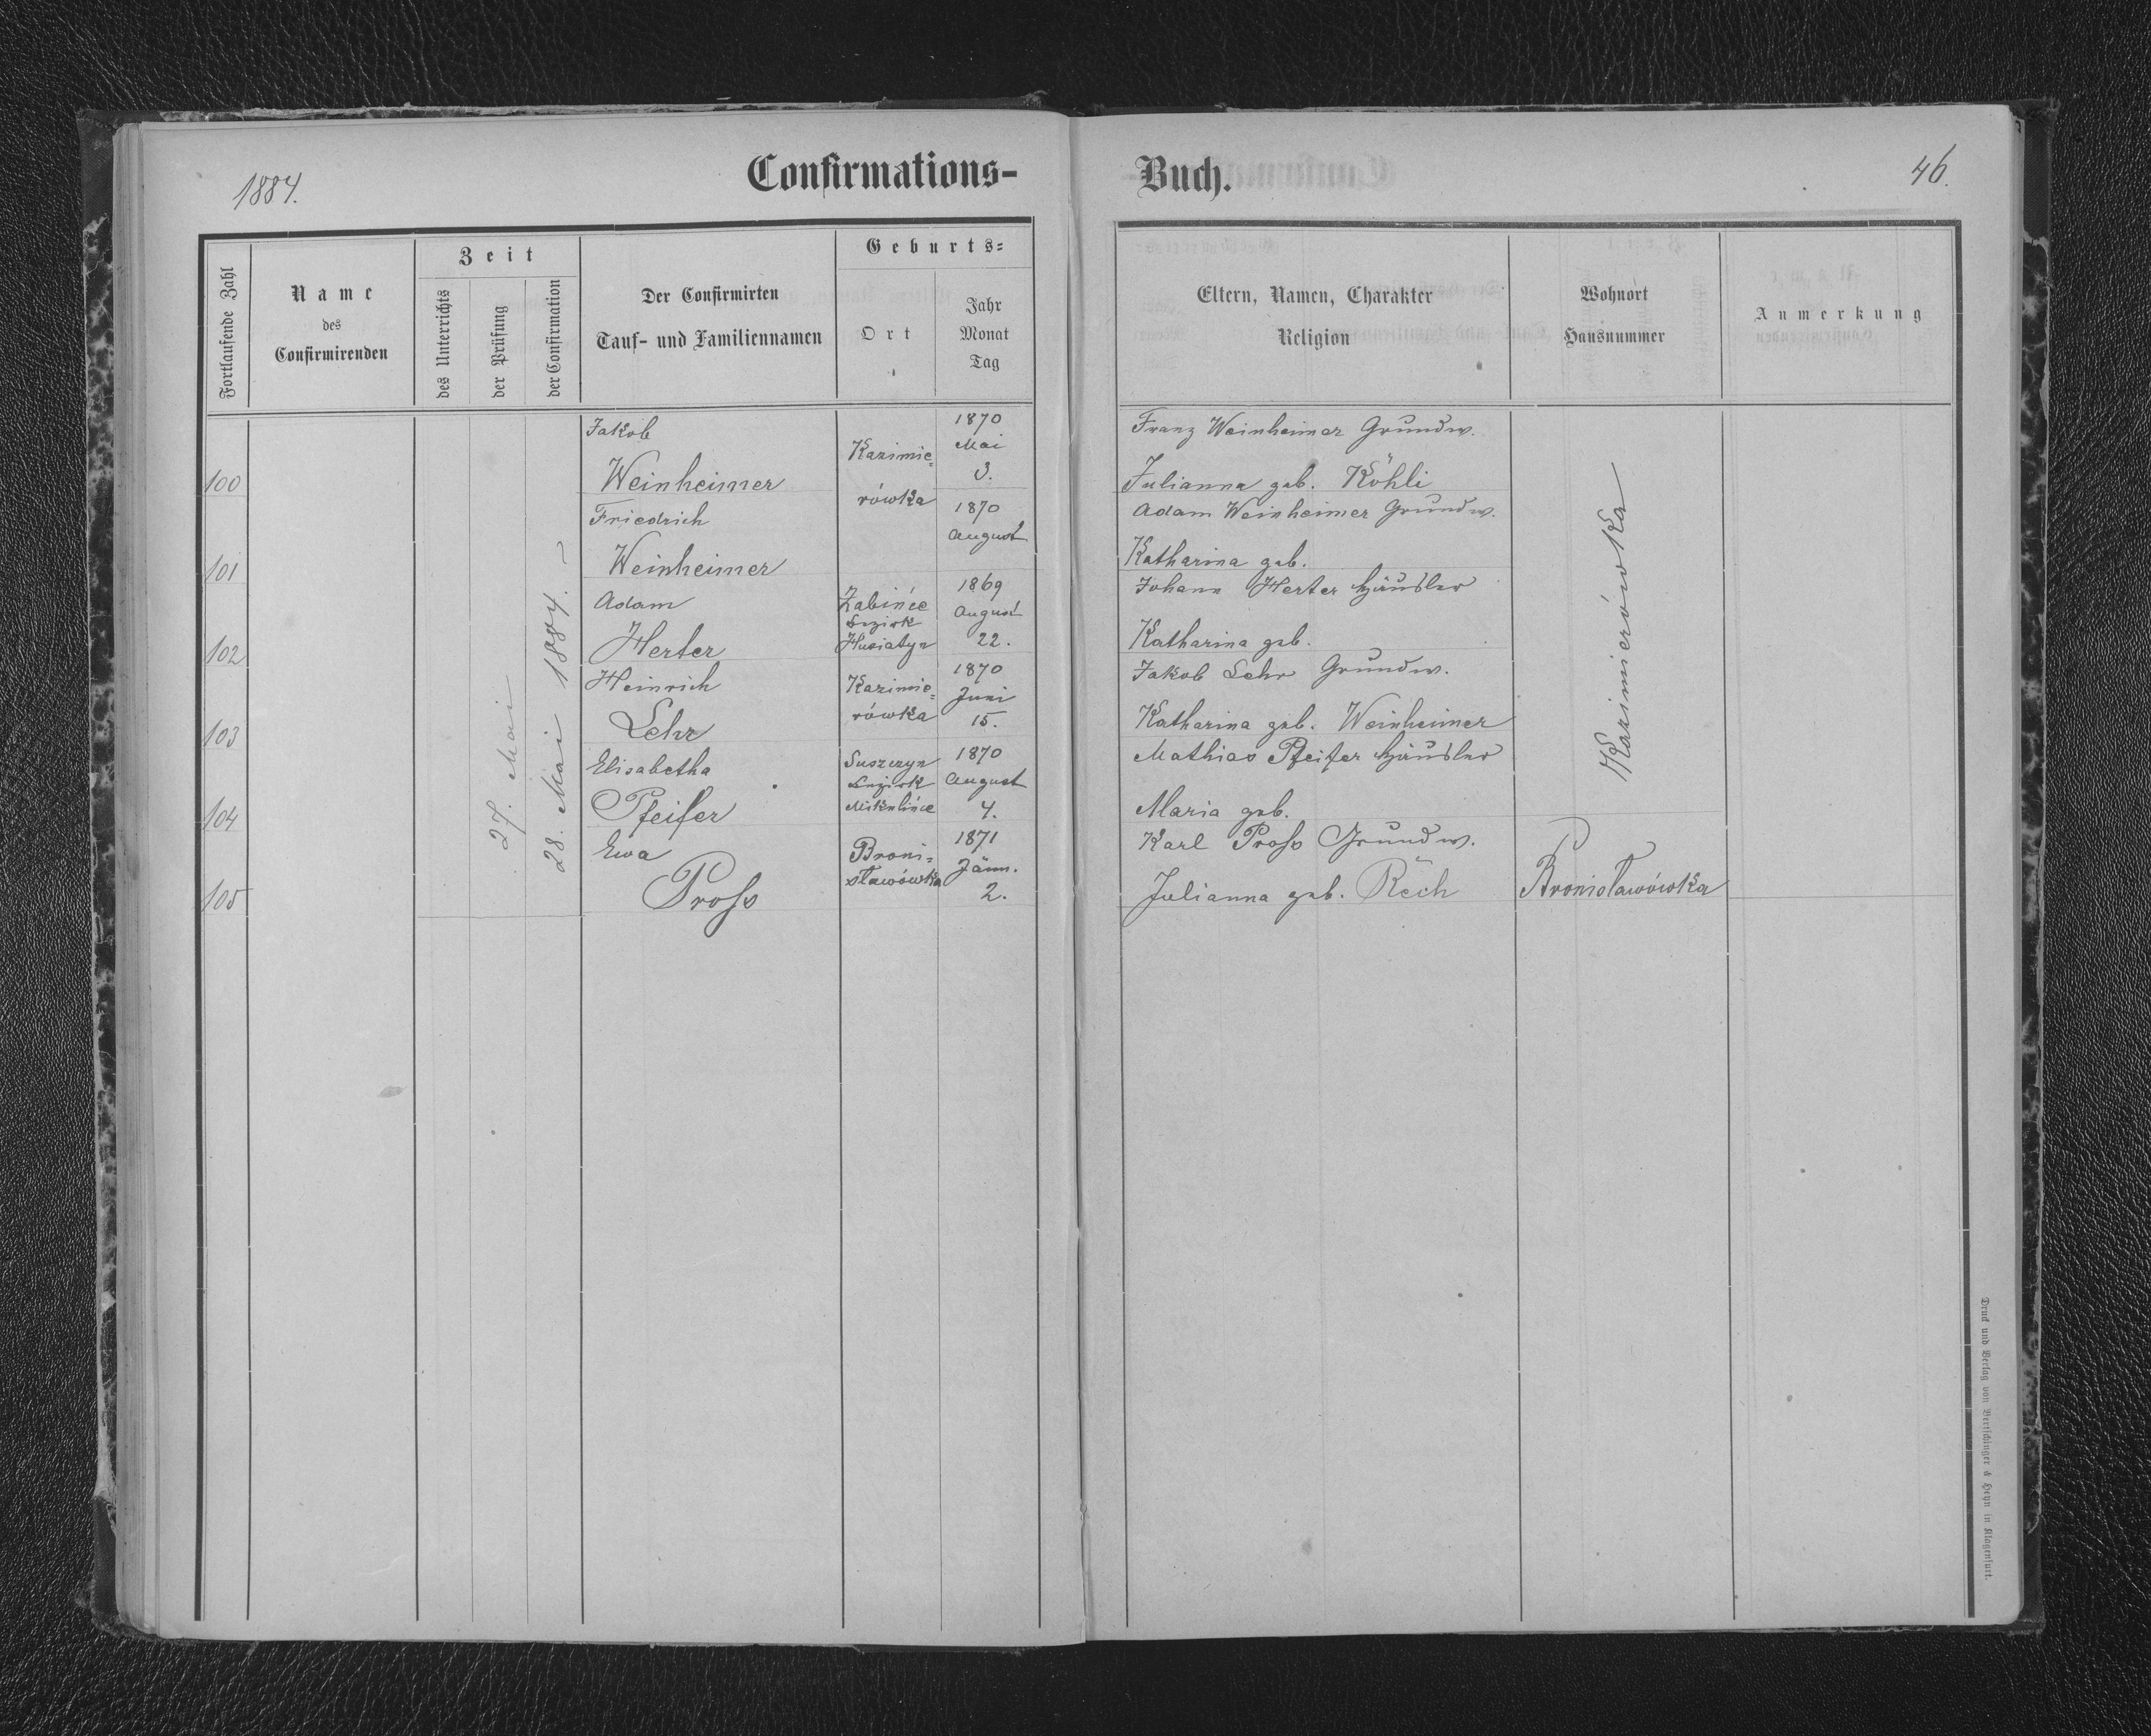 1884.
Confirmations-
Buch.
46.
Fortlaufende Zahl
Name
des
Confirmirenden
Zeit
des Unterrichts
der Prüfung
der Confirmation
Der Confirmirten
Tauf- und Familiennamen
Geburts=
Ort
Jahr
Monat
Tag
Eltern, Namen, Charakter
Religion
Wohnort
Hausnummer
Anmerkung
27. Mai
28. Mai 1884. –
100
Jakob
Weinheimer
Kazimie=
rówka
1870
Mai
3.
Franz Weinheimer Grundw.
Julianna geb. Köhli
Kazimierówka
101
Friedrich
Weinheimer
1870
August
Adam Weinheimer Grundw.
Katharina geb.
102
Adam
Herter
Żabińce
Bezirk
Husiatyn
1869
August
22.
Johann Herter Häusler
Katharina geb.
103
Heinrich
Lehr
Kazimie=
rówka
1870
Juni
15.
Jakob Lehr Grundw.
Katharina geb. Weinheimer
104
Elisabetha
Pfeifer
Suszczyn
Bezirk
Mikulińce
1870
August
4.
Mathias Pfeifer Häusler
Maria geb.
105
Ewa
Pross
Broni=
sławówka
1871
Jänn.
2.
Karl Pross Grundw.
Julianna geb. Rech
Bronisławówka
Druck und Verlag von Bertschinger & Heyn in Klagenfurt.